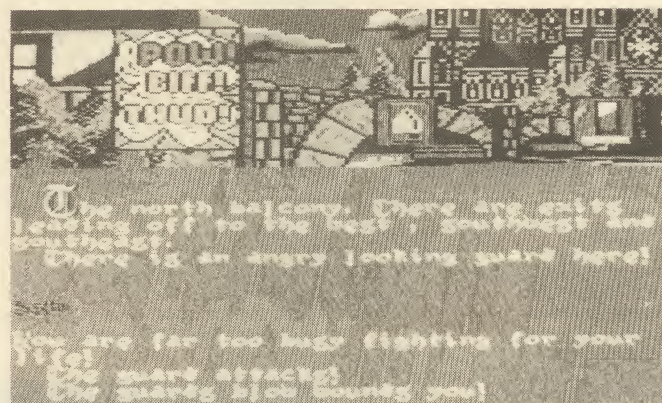 POW!
BIFF!
THUD!
The north balcony. There are exits
leading off to the west, southwest and
southeast.
There is an angry looking guard here!
You are far too busy fighting for your
life!
The guard attacks!
The guards blow wounds you!